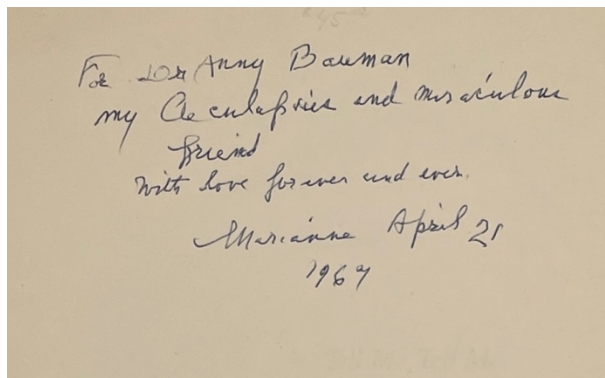 For Dr Anny Bauman
my Aesculapius and miraculous
friend
with love for ever and ever.
Marianne April 21